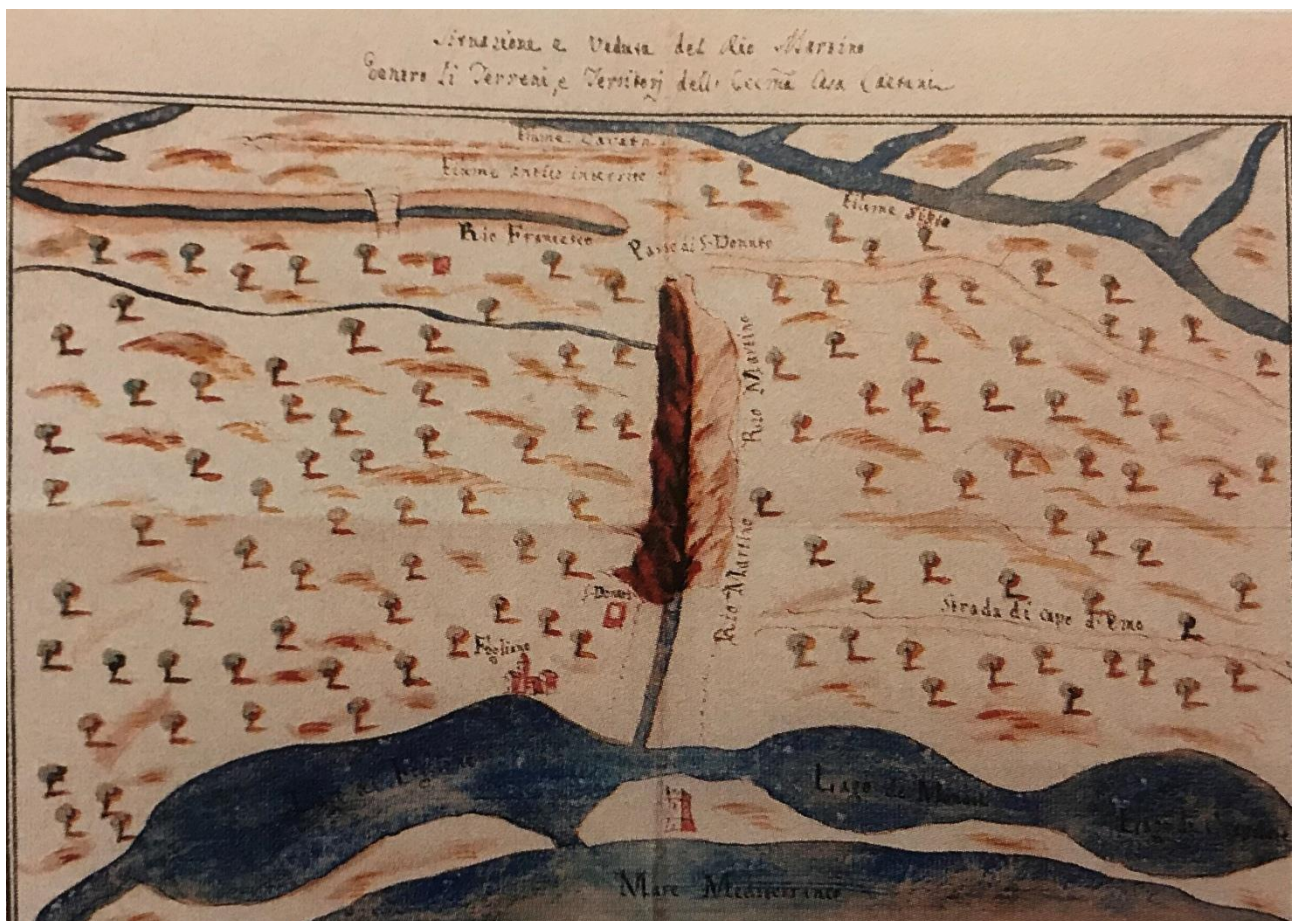 Situazione e Veduta del Rio Martino
Dentro li Terreni, e Territorj dell' Eccma Casa Caetani
Fiume Cavata
Fiume antico interrito
Fiume Sisto
Rio Francesco
Passo di S. Donato
Rio Martino
Rio Martino
S. Donato
Strada di capo d'Omo
Fogliano
Lago di Fogliano
Lago di Monaci
Mare Mediterraneo